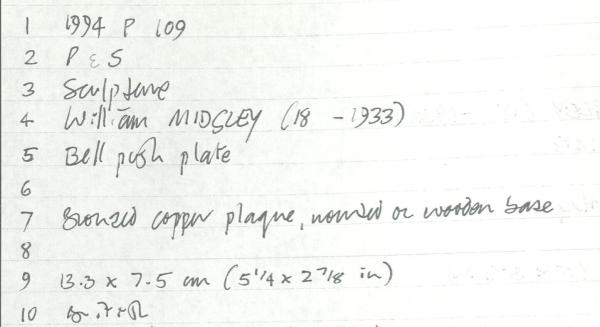 1 1994 P 109
2 P & S
3 Sculpture
4 William MIDGLEY (18 - 1933)
5 Bell push plate
6
7 Bronzed copper plaque, mounted on wooden base
8
9 13.3 x 7.5 cm (5 1/4 x 2 7/8 in)
10 British